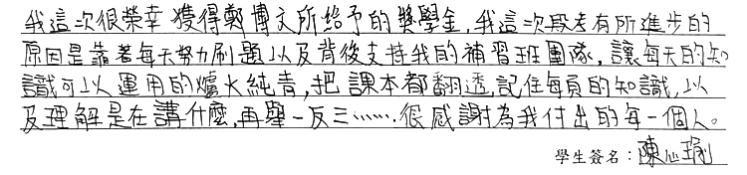 我這次很榮幸獲得鄭博文所給予的獎學金,我這次段考有所進步的
原因是靠著每天努力刷題以及背後支持我的補習班團隊,讓每天的知
識可以運用的爐火純青,把課本都翻透,記住每頁的知識,以
及理解是在講什麼,再舉一反三……很感謝為我付出的每一個人。
學生簽名:陳心瑜